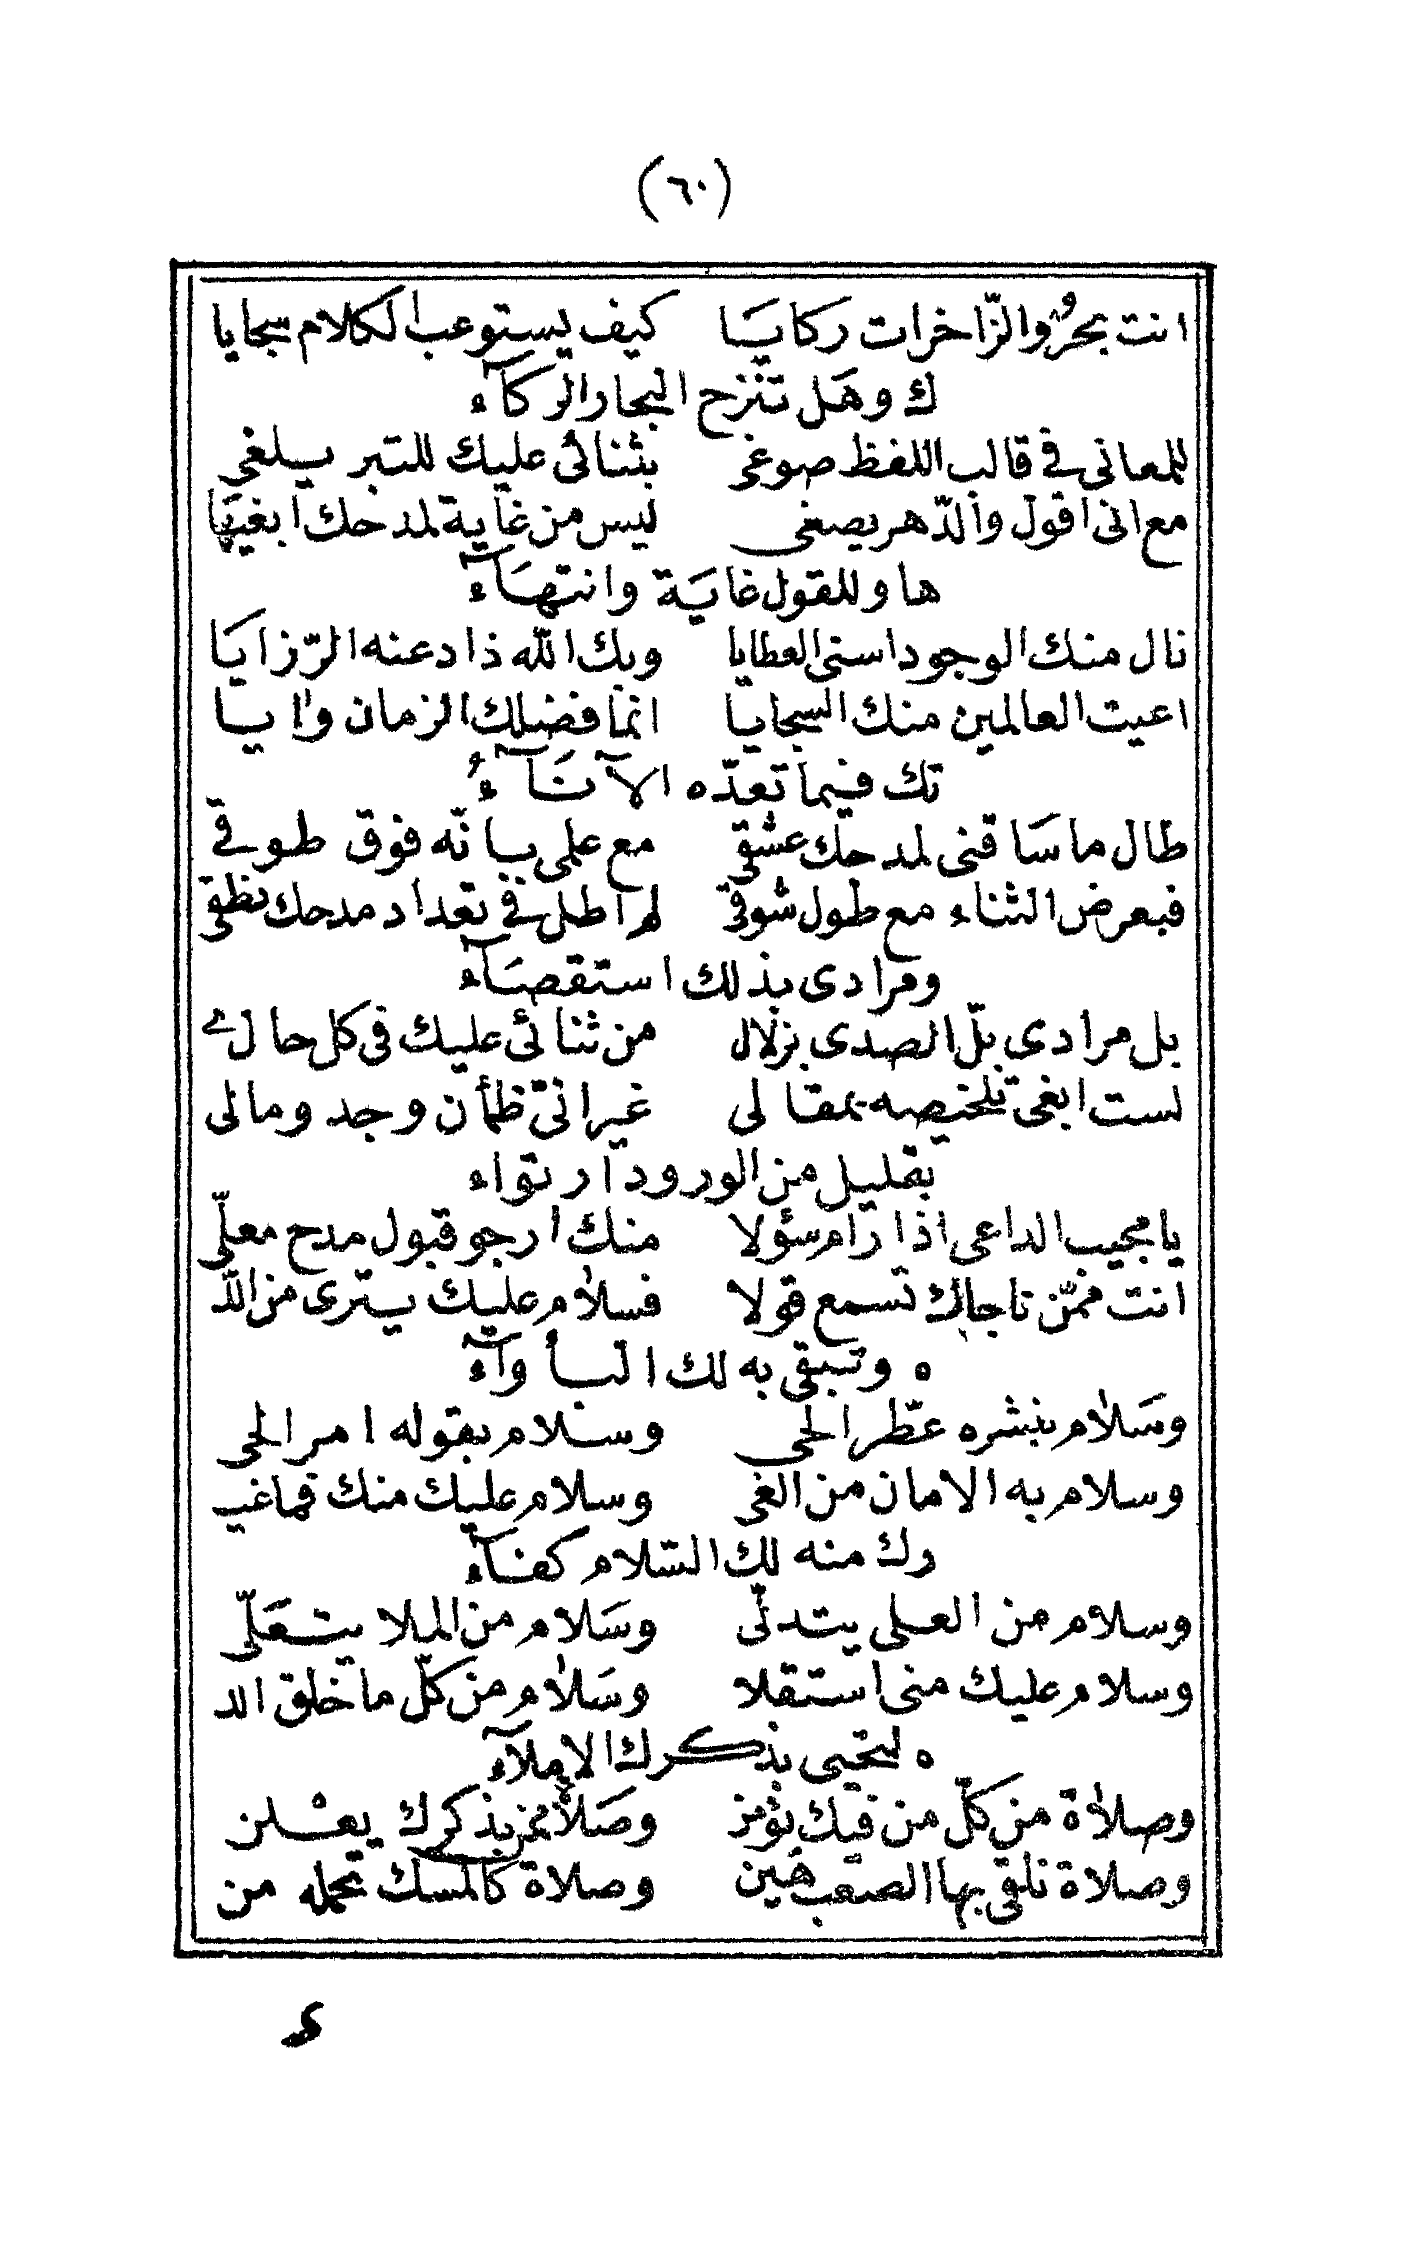 (٦٠)
انت بحرٌ والزّاخرات ركايَا كيف يستوعب الكلام سجايا
ك وهَل تَنْزح البحار الركآء
للمعانى فى قالب اللفظ صوغى بثنائى عليك للتبر يسلغى
مع انى اقول والدّهر يصغى ليس من غاية لمدحك ابغيها
ها وللقول غايَة وانتهَآء
نال منك الوجود اسنى العطايا وبك الله ذاد عنه الرّزايَا
اعيت العالمين منك السجايا انمّا فضلك الزمان وإيا
تك فيما تعدّه الآنَآءُ
طال ما سَاقنى لمدحك عشقى مع علمى بانّه فوق طوقى
فبعرض الثناء مع طول شوقى لم اطل فى تعداد مدحك نطقى
ومرادى بذلك استقصَآء
بل مرادى بلّ الصدى بزلال من ثنائى عليك فى كل حال
لست ابغى تلخيصه بمقالى غير انّى ظمأن وجد ومالى
بقليل من الورود ارتواء
يا مجيب الداعى اذا رام سؤلا منك أرجو قبول مدح معلّى
انت ممّن ناجاك تسمع قولا فسلام عليك يترى من اللّه
ه وتبقى به لك البأوآء
وسَلام بنشره عطّر الحى وسلام بقوله امر الحى
وسلام به الامان من الغى وسلام عليك منك فما غيـ
رك منه لك السّلام كفآء
وسلام من العلى يتدلّى وسَلام من الملا يتعَلّى
وسلام عليك منى استقلا وسَلام من كلّ ما خلق الد
ه لتحيى بذكرك الاملآء
وصلاة من كلّ من فيك يؤمن وصَلاة ممن بذكرك يعلن
وصلاة نلقى بها الصعب هَين وصلاة كالمسك تحمله من